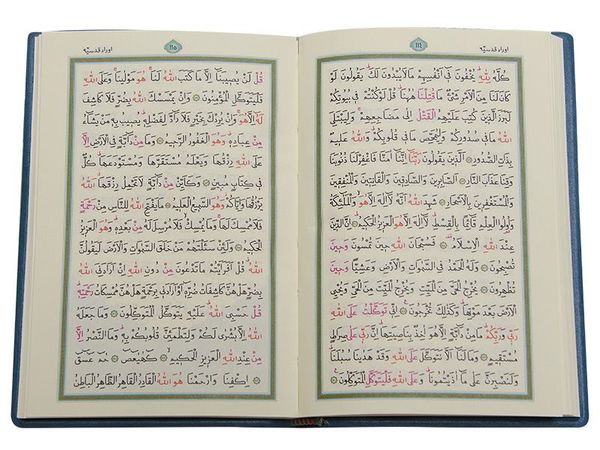 اوراد قدسيّه
١١٤
كُلَّهُ لِلّٰهِ يُخْفُونَ فِٓي اَنْفُسِهِمْ مَا لَا يُبْدُونَ لَكَ يَقُولُونَ لَوْ
كَانَ لَنَا مِنَ الْاَمْرِ شَيْءٌ مَا قُتِلْنَا هٰهُنَا قُلْ لَوْ كُنْتُمْ فِي بُيُوتِكُمْ
لَبَرَزَ الَّذِينَ كُتِبَ عَلَيْهِمُ الْقَتْلُ اِلٰى مَضَاجِعِهِمْ وَلِيَبْتَلِيَ
اللّٰهُ مَا فِي صُدُورِكُمْ وَلِيُمَحِّصَ مَا فِي قُلُوبِكُمْ وَاللّٰهُ عَلِيمٌ
بِذَاتِ الصُّدُورِ ۞ الَّذِينَ يَقُولُونَ رَبَّنَٓا اِنَّنَٓا اٰمَنَّا فَاغْفِرْ لَنَا ذُنُوبَنَا
وَقِنَا عَذَابَ النَّارِ ۞ الصَّابِرِينَ وَالصَّادِقِينَ وَالْقَانِتِينَ وَالْمُنْفِقِينَ
وَالْمُسْتَغْفِرِينَ بِالْاَسْحَارِ ۞ شَهِدَ اللّٰهُ اَنَّهُ لَٓا اِلٰهَ اِلَّا هُوَ وَالْمَلٰٓئِكَةُ
وَاُولُوا الْعِلْمِ قَٓائِمًا بِالْقِسْطِ لَٓا اِلٰهَ اِلَّا هُوَ الْعَزِيزُ الْحَكِيمُ ۞ اِنَّ الدِّينَ
عِنْدَ اللّٰهِ الْاِسْلَامُ ۞ فَسُبْحَانَ اللّٰهِ حِينَ تُمْسُونَ وَحِينَ
تُصْبِحُونَ ۞ وَلَهُ الْحَمْدُ فِي السَّمٰوَاتِ وَالْاَرْضِ وَعَشِيًّا وَحِينَ
تُظْهِرُونَ ۞ يُخْرِجُ الْحَيَّ مِنَ الْمَيِّتِ وَيُخْرِجُ الْمَيِّتَ مِنَ الْحَيِّ وَيُحْيِي
الْاَرْضَ بَعْدَ مَوْتِهَا وَكَذٰلِكَ تُخْرَجُونَ ۞ اِنِّي تَوَكَّلْتُ عَلَى اللّٰهِ
رَبِّي وَرَبِّكُمْ مَا مِنْ دَٓابَّةٍ اِلَّا هُوَ اٰخِذٌ بِنَاصِيَتِهَا اِنَّ رَبِّي عَلٰى صِرَاطٍ
مُسْتَقِيمٍ ۞ وَمَا لَنَٓا اَلَّا نَتَوَكَّلَ عَلَى اللّٰهِ وَقَدْ هَدٰينَا سُبُلَنَا
وَلَنَصْبِرَنَّ عَلٰى مَٓا اٰذَيْتُمُونَا وَعَلَى اللّٰهِ فَلْيَتَوَكَّلِ الْمُتَوَكِّلُونَ ۞
اوراد قدسيّه
١١٥
قُلْ لَنْ يُصِيبَنَٓا اِلَّا مَا كَتَبَ اللّٰهُ لَنَا هُوَ مَوْلٰينَا وَعَلَى اللّٰهِ
فَلْيَتَوَكَّلِ الْمُؤْمِنُونَ ۞ وَاِنْ يَمْسَسْكَ اللّٰهُ بِضُرٍّ فَلَا كَاشِفَ
لَهُٓ اِلَّا هُوَ وَاِنْ يُرِدْكَ بِخَيْرٍ فَلَا رَٓادَّ لِفَضْلِهِ يُصِيبُ بِهِ مَنْ يَشَٓاءُ
مِنْ عِبَادِهِ وَهُوَ الْغَفُورُ الرَّحِيمُ ۞ وَمَا مِنْ دَٓابَّةٍ فِي الْاَرْضِ اِلَّا
عَلَى اللّٰهِ رِزْقُهَا وَيَعْلَمُ مُسْتَقَرَّهَا وَمُسْتَوْدَعَهَا كُلٌّ
فِي كِتَابٍ مُبِينٍ ۞ وَكَاَيِّنْ مِنْ دَٓابَّةٍ لَا تَحْمِلُ رِزْقَهَا اللّٰهُ
يَرْزُقُهَا وَاِيَّاكُمْ وَهُوَ السَّمِيعُ الْعَلِيمُ ۞ مَا يَفْتَحِ اللّٰهُ لِلنَّاسِ مِنْ رَحْمَةٍ
فَلَا مُمْسِكَ لَهَا وَمَا يُمْسِكْ فَلَا مُرْسِلَ لَهُ مِنْ بَعْدِهِ وَهُوَ الْعَزِيزُ
الْحَكِيمُ ۞ وَلَئِنْ سَاَلْتَهُمْ مَنْ خَلَقَ السَّمٰوَاتِ وَالْاَرْضَ لَيَقُولُنَّ
اللّٰهُ قُلْ اَفَرَاَيْتُمْ مَا تَدْعُونَ مِنْ دُونِ اللّٰهِ اِنْ اَرَادَنِيَ اللّٰهُ
بِضُرٍّ هَلْ هُنَّ كَاشِفَاتُ ضُرِّهِ اَوْ اَرَادَنِي بِرَحْمَةٍ هَلْ هُنَّ مُمْسِكَاتُ رَحْمَتِهِ
قُلْ حَسْبِيَ اللّٰهُ عَلَيْهِ يَتَوَكَّلُ الْمُتَوَكِّلُونَ ۞ وَمَا جَعَلَهُ
اللّٰهُ اِلَّا بُشْرٰى لَكُمْ وَلِتَطْمَئِنَّ قُلُوبُكُمْ بِهِ وَمَا النَّصْرُ اِلَّا
مِنْ عِنْدِ اللّٰهِ الْعَزِيزِ الْحَكِيمِ ۞ كٓهٰيٰعٓصٓ ۞ حٰمٓ عٓسٓقٓ
۞ اِكْفِنَا وَارْحَمْنَا هُوَ اللّٰهُ الْقَادِرُ الْقَاهِرُ الظَّاهِرُ الْبَاطِنُ